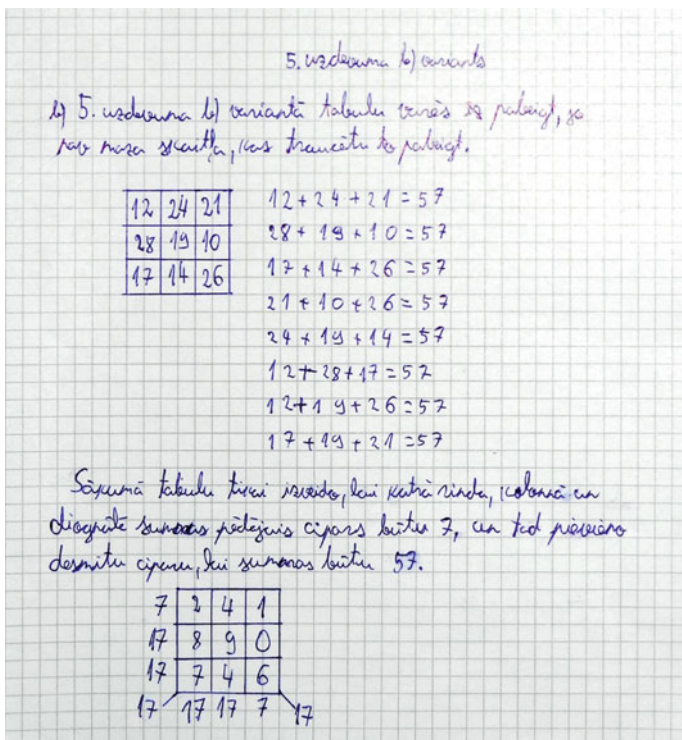 5. uzdevuma b) variants
b) 5. uzdevuma b) variantā tabulu varēs pabeigt, jo
nav maza skaitļa, kas traucētu to pabeigt.
12 24 21 12+24+21=57
28 19 10 28+19+10=57
17 14 26 17+14+26=57
21+10+26=57
24+19+14=57
12+28+17=57
12+19+26=57
17+19+21=57
Sākumā tabulu tikai izveido, lai katrā rinda, kolonnā un
pēdējais cipars būtu 7, un tad pievieno
desmitu ciparu, lai summas būtu 57.
7 2 4 1
17 8 9 0
17 7 4 6
17 17 17 7 17